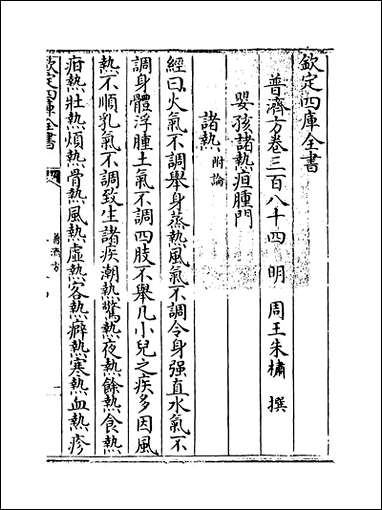 欽定四庫全書
普濟方卷三百八十四 明 周王朱橚 撰
嬰孩諸熱疸腫門
諸熱 附論
經曰火氣不調舉身蒸熱風氣不調令身强直水氣不
調身體浮腫土氣不調四肢不舉凡小兒之疾多因風
熱不順乳氣不調致生諸疾潮熱驚熱夜熱餘熱食熱
疳熱壯熱煩熱骨熱風熱虛熱客熱癖熱寒熱血熱疹
欽定四庫全書
普濟方
一